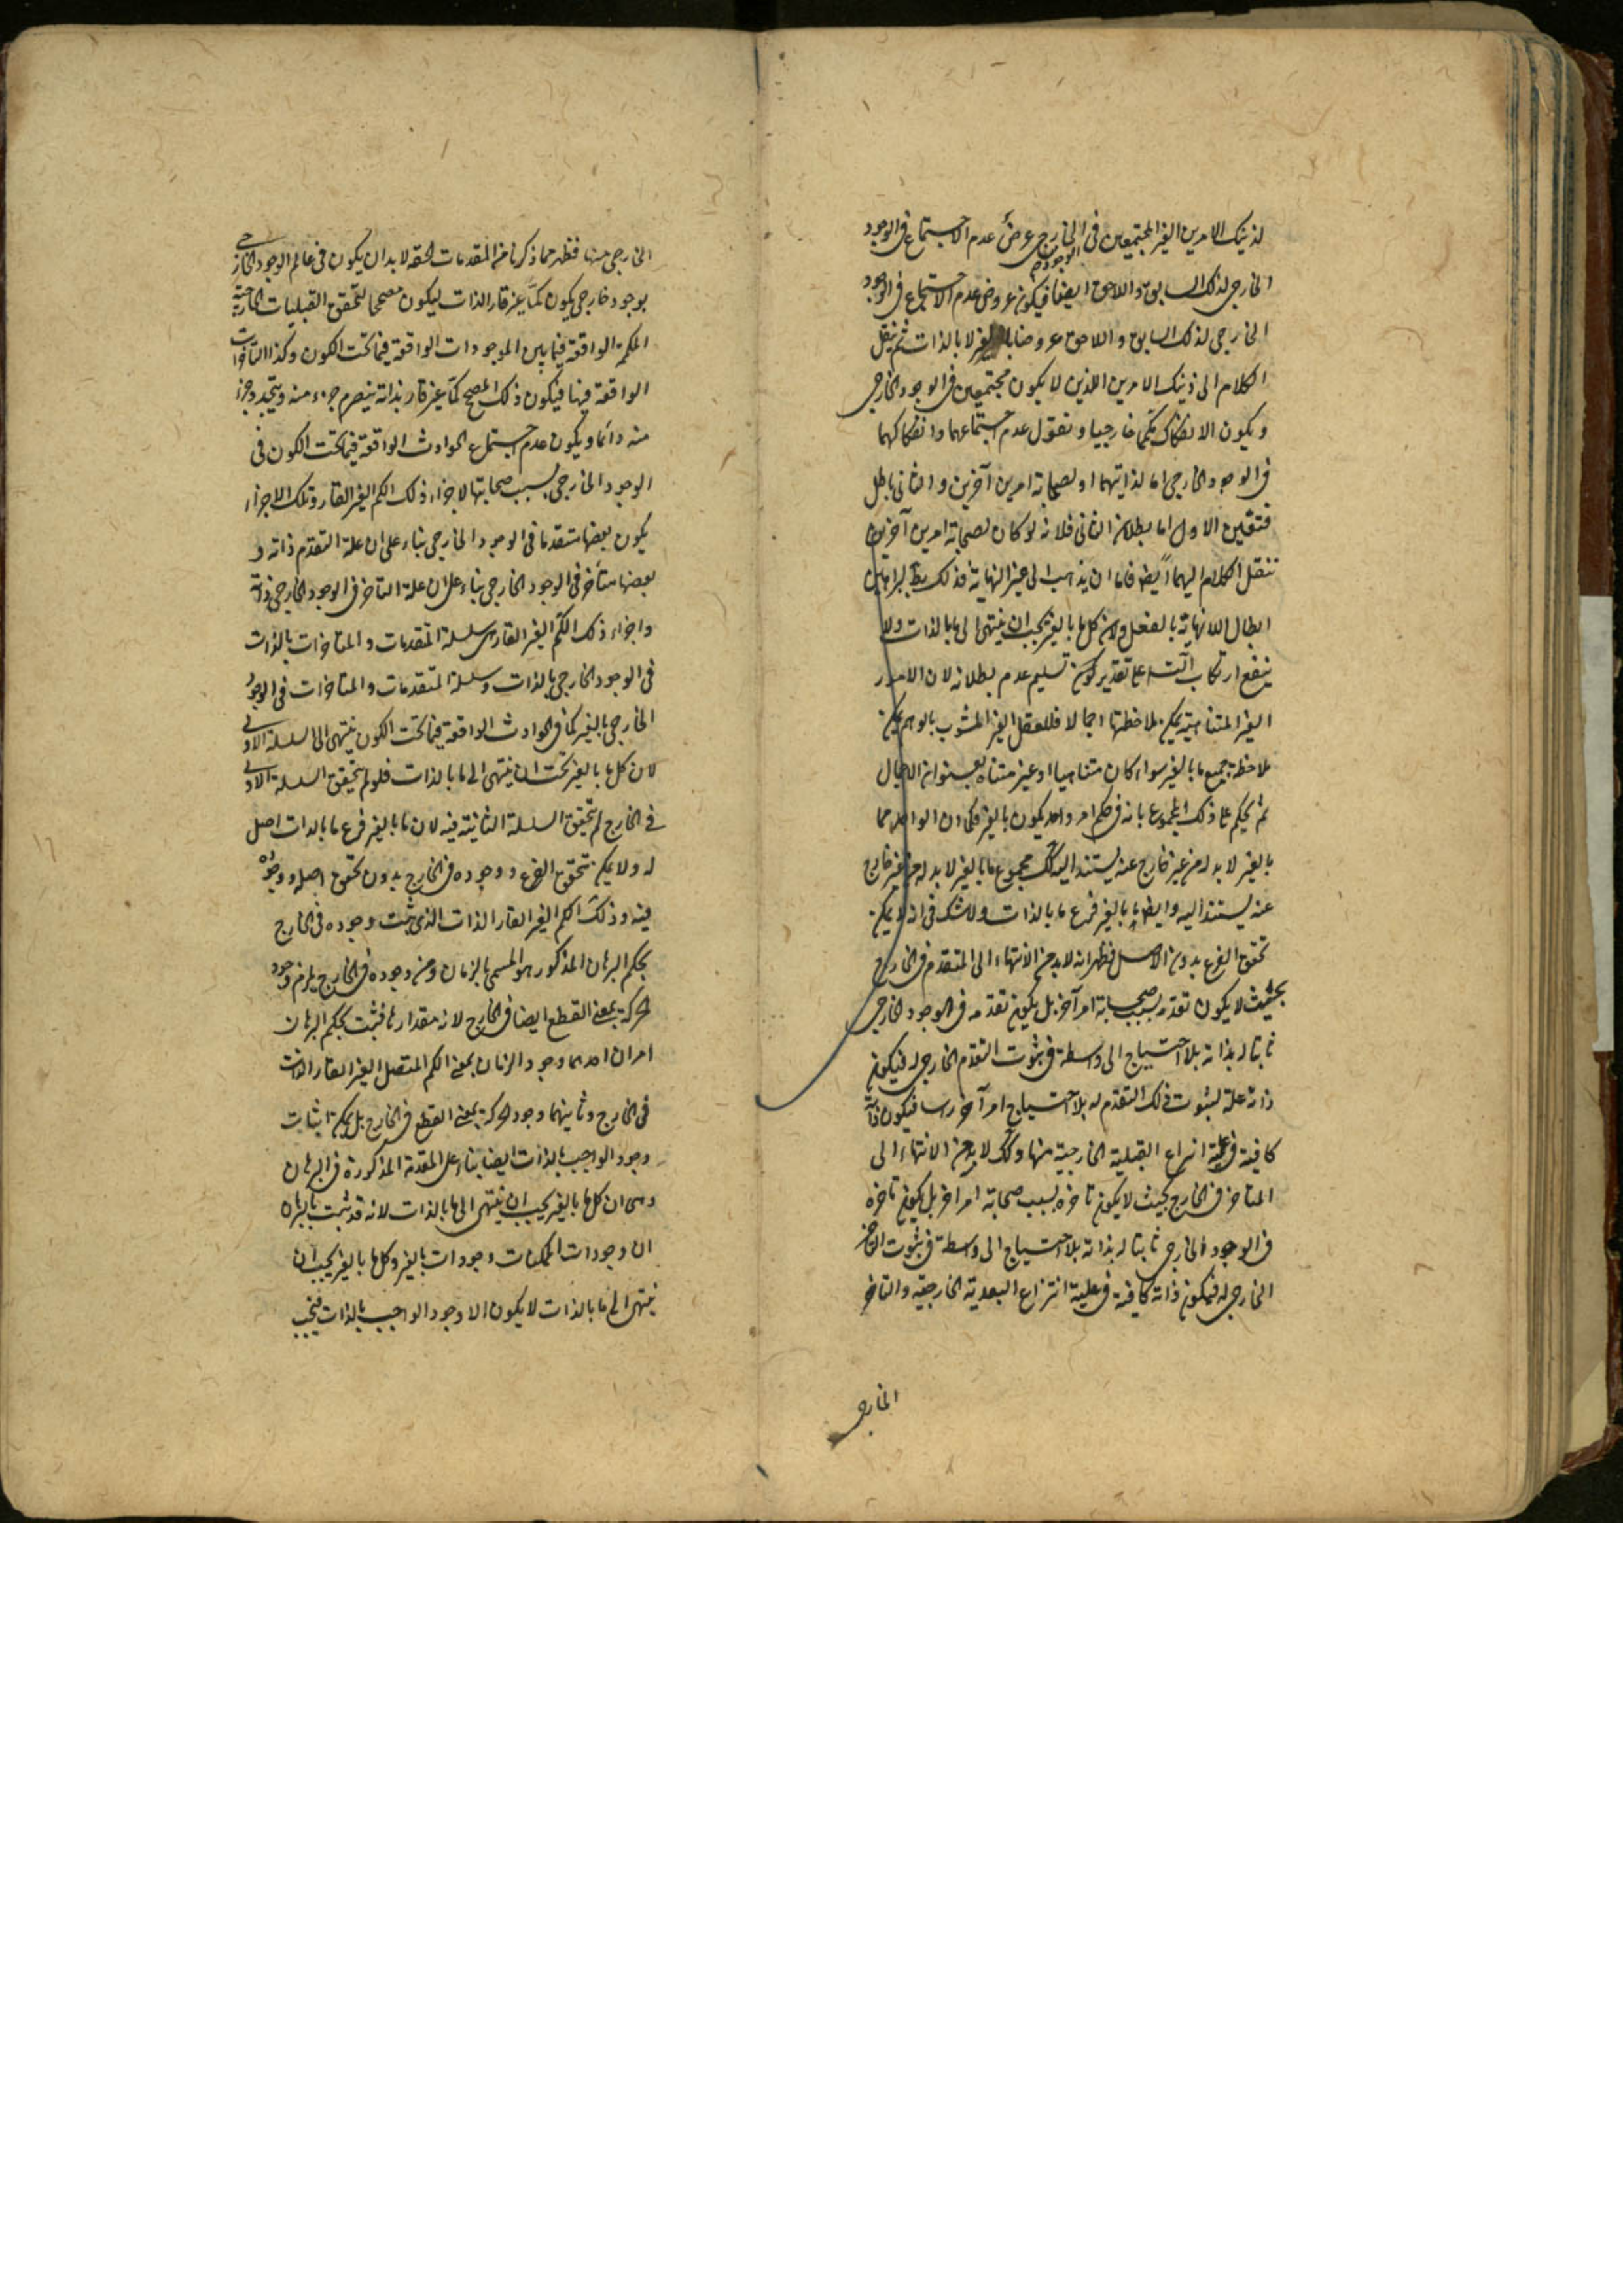 لذينك الامرين الغير المجتمعين فى الخارج عرض عدم الاجتماع فى الوجود
الوجودى
الخارجى لذلك السابق واللاحق ايضا فيكون عروض عدم الاجتماع فى الوجود
الخارجى لذلك السابق واللاحق عروضا بالغير لا بالذات ثم ننقل
الكلام الى ذينك الامرين اللذين لا يكون مجتمعين فى الوجود الخارجى
ويكون الانفكاك بينهما خارجيا ونقول عدم اجتماعهما وانفكاكهما
فى الوجود الخارجى اما لذاتيهما او لصحابة امرين آخرين والثانى باطل
فتعين الاول اما بطلان الثانى فلانه لو كان لصحابة امرين آخرين
ننقل الكلام اليهما ايضا فاما ان يذهب الى غير النهاية فذلك بط ببراهين
ابطال اللانهاية بالفعل ولان كل ما بالغير يجب ان ينتهى الى ما بالذات ولا
ينفع ارتكاب التسلسل على تقدير تسليم عدم بطلانه لان الامور
الغير المتناهية يمكن ملاحظتها اجمالا فللعقل الغير المشوب بالوهم يمكن
ملاحظة جميع ما بالغير سواء كان متناهيا او غير متناه بعنوان الاجمال
ثم يحكم على ذلك المجموع بانه فى حكم امر واحد يكون بالغير فكما ان الواحد مما
بالغير لا بد له من غير خارج عنه يستند اليه كك مجموع ما بالغير لا بد له من غير خارج
عنه يستند اليه وايضا ما بالغير فرع ما بالذات ولا شك فى انه لا يمكن
تحقق الفرع بدون الاصل فظهر انه لا بد من الانتهاء الى المتقدم فى الخارج
بحيث لا يكون تقدمه بسبب صحابة امر آخر بل يكون تقدمه فى الوجود الخارجى
ثابتا له بذاته بلا احتياج الى واسطة فى ثبوت التقدم الخارجى له فيكون
ذاته علة لثبوت ذلك التقدم له بلا احتياج امر آخر فيكون ذاته
كافية فى علية انتزاع القبلية الخارجية منها وكك لا بد من الانتهاء الى
المتاخر فى الخارج بحيث لا يكون تاخره بسبب صحابة امر اخر بل يكون تاخره
فى الوجود الخارجى ثابتا له بذاته بلا احتياج الى واسطة فى ثبوت التاخر
الخارجى له فيكون ذاته كافية فى علية انتزاع البعدية الخارجية والتاخر
الخارجى
الخارجى منها فظهر مما ذكرنا من المقدمات الحقة لا بد ان يكون فى عالم الوجود الخارجى
بوجود خارجى يكون كما غير قار الذات ليكون مصححا لتحقق القبليات الخارجية
الواقعة فيما بين الموجودات الواقعة فيما تحت الكون وكذا التاخرات
الواقعة فيها فيكون ذلك المصحح كما غير قار بذاته ينصرم جزء منه ويتجدد جزء
منه دائما ويكون عدم اجتماع الحوادث الواقعة فيما تحت الكون فى
الوجود الخارجى بسبب صحابتها لاجزاء ذلك الكم الغير القار وتلك الاجزاء
يكون بعضها متقدما فى الوجود الخارجى بناء على ان علة التقدم ذاته و
بعضها متأخر فى الوجود الخارجى بناء على ان علة التاخر فى الوجود الخارجى ذاته
واجزاء ذلك الكم الغير القار هى سلسلة المتقدمات والمتاخرات بالذات
فى الوجود الخارجى بالذات وسلسلة المتقدمات والمتاخرات فى الوجود
الخارجى بالغير كما فى الحوادث الواقعة فيما تحت الكون ينتهى الى السلسلة الاولى
لان كل ما بالغير يجب ان ينتهى الى ما بالذات فلو لم يتحقق السلسلة الاولى
فى الخارج لم يتحقق السلسلة الثانية فيه لان ما بالغير فرع ما بالذات اصل
له ولا يمكن تحقق الفرع ووجوده فى الخارج بدون تحقق اصله ووجوده
فيه وذلك الكم الغير القار الذات الذى ثبت وجوده فى الخارج
بحكم البرهان المذكور هو المسمى بالزمان ومن وجوده فى الخارج يلزم وجود
الحركة بمعنى القطع ايضا فى الخارج لانه مقدارها فثبت بحكم البرهان
امران احدهما وجود الزمان بمعنى الكم المتصل الغير القار الذات
فى الخارج وثانيهما وجود الحركة بمعنى القطع فى الخارج بل يمكن اثبات
وجود الواجب بالذات ايضا بناء على المقدمة المذكورة فى البرهان
وهى ان كل ما بالغير يجب ان ينتهى الى ما بالذات لانه قد ثبت بالبرهان
ان وجودات الممكنات وجودات بالغير وكل ما بالغير يجب ان
ينتهى الى ما بالذات لا يكون الا وجود الواجب بالذات فيجب